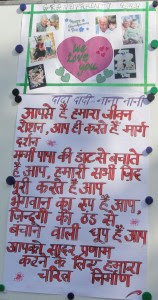 We
Love
you
दादा दादी नाना नानी
आपसे है हमारा जीवन
रोशन, आप ही करते हैं मार्ग
दर्शन
मम्मी पापा की डांट से बचाते
हैं आप, हमारी सभी जिद
पुरी करते हैं आप
भगवान का रूप हैं आप
जिन्दगी की ठंड से
बचाने वाली धूप हैं आप
आपको सादर प्रणाम
करने के लिए हमारा
चरित्र निर्माण